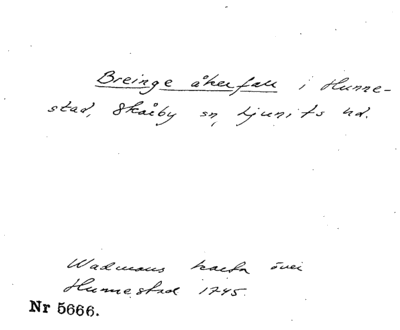 Breinge åkerfall i Hunne-
stad, Skårby sn, Ljunits hd.
Wadmans karta över
Hunnestad 1745.
Nr 5666.